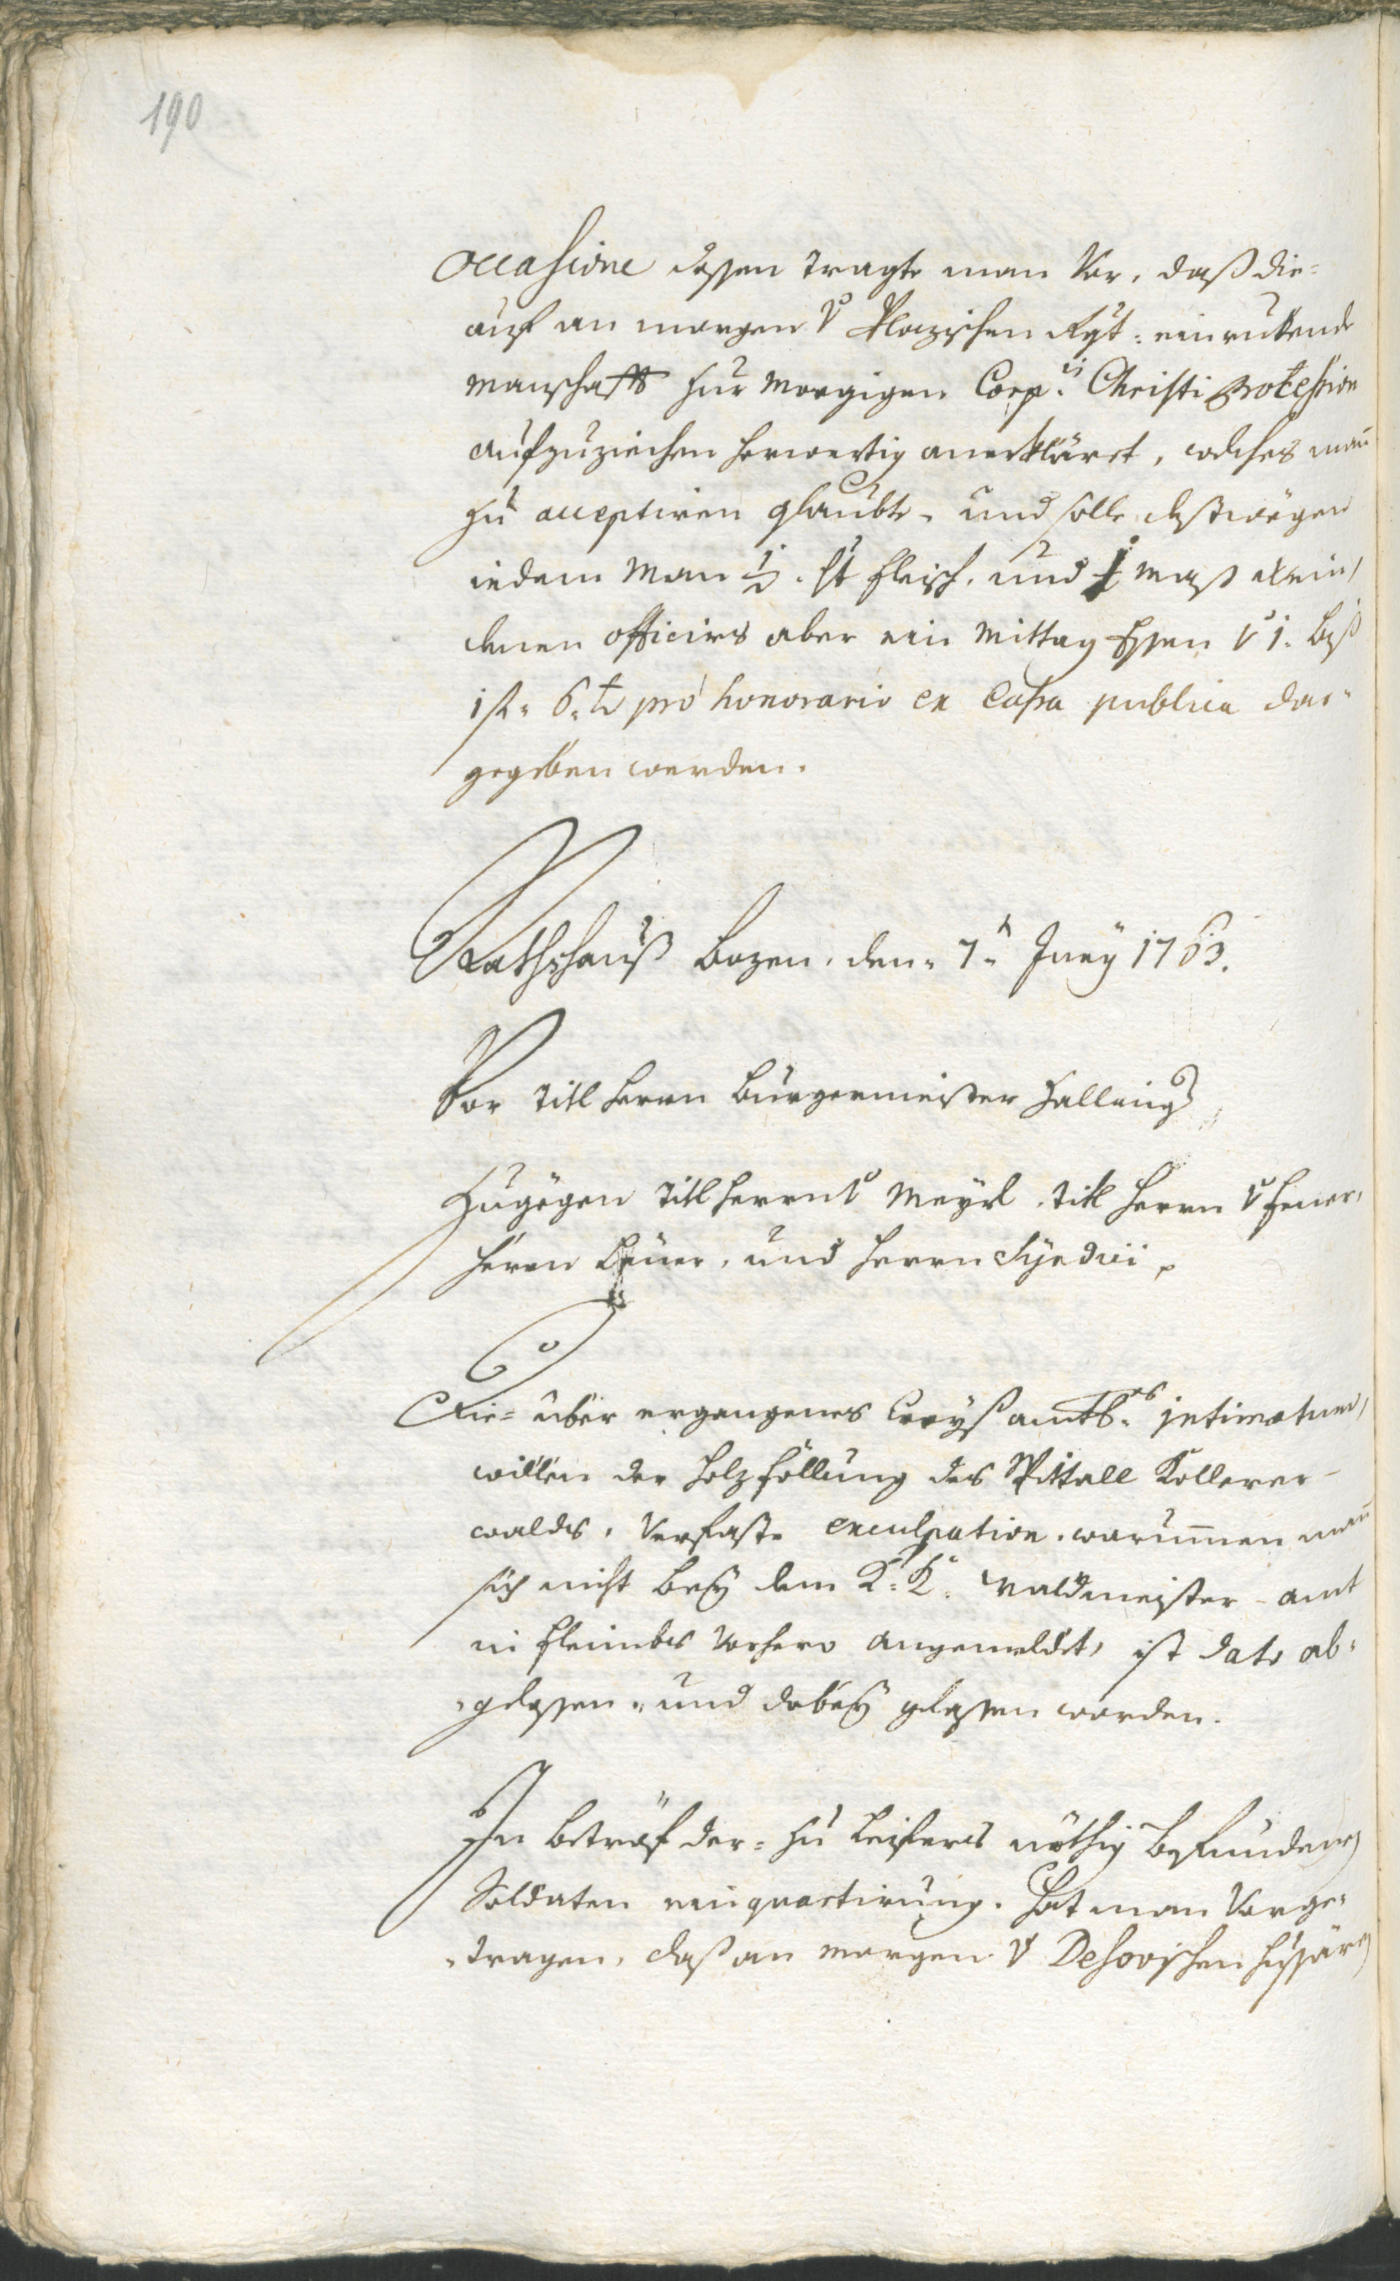 190
Occasione dessen tragte man Vor, daß die=
auf an morgen v Plazischen Rgt: einrukende
manschafft zur morgigen Corp:is Christi Procession
aufzuziechen herwertig anerkläret, welches man
zu acceptiren glaubte, und solle destwögen
iedem Man ½ . lb fleisch, und 1 maß wein,
denen officirs aber ein Mittag Essen v 1. biß
1 f. 6. xr pro honorario ex Cassa publica dar=
gegeben werden.
Rathshauß Bozen, den 7.n Juny 1763.
Vor Titl Herrn Burgermeister
Zugögen Titl Herrn v Meyrl, Titl Herrn v
Herrn und Herrn Syndici
Die= über ergangenes Creyßamts. intimatum,
willen der Holzföllung des Spittall Kollerer=
walds, Verfaste exculpation, warummen man
sich nicht bey dem K: K: Waldmeister= amt
in fleimbs vorhero angemeldet, ist dato ab=
=gelesen, und dabey gelassen worden.
In betröf der= zu Leifers nöthig befunden
Soldaten einquartirung, hat man Vorge=
=tragen, daß an morgen v Desovischen Hussären